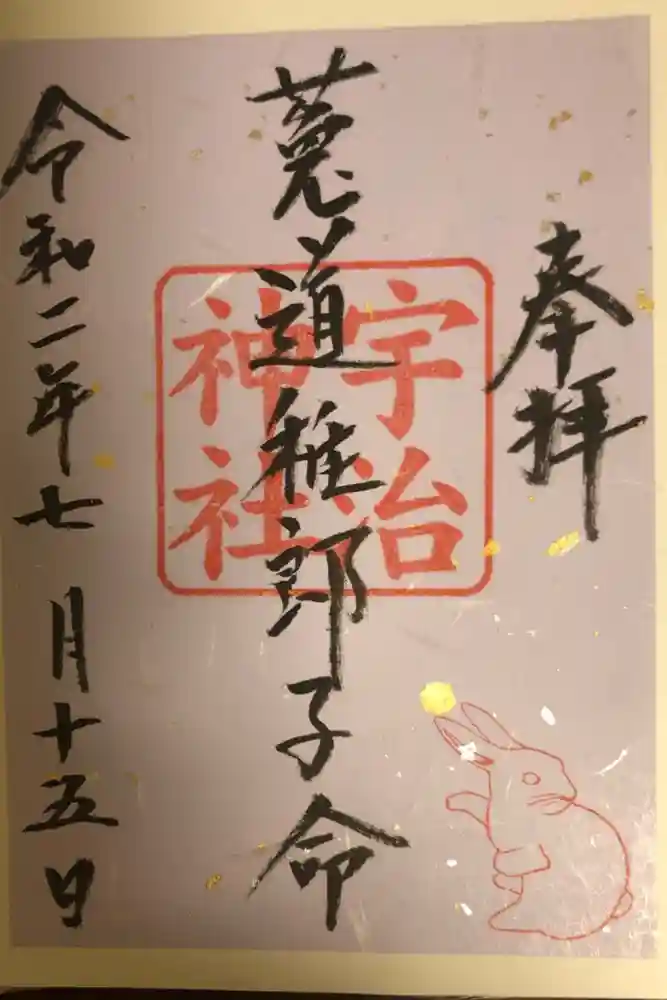 奉拝
菟道稚郎子命
宇治
神社
令和二年七月十五日